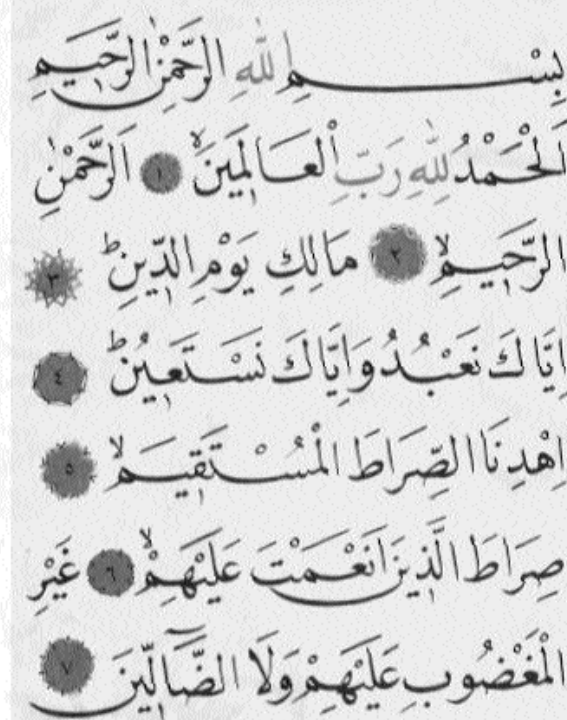 بِسْمِ اللّٰهِ الرَّحْمٰنِ الرَّحٖيمِ
اَلْحَمْدُ لِلّٰهِ رَبِّ الْعَالَمٖينَۙ ١ اَلرَّحْمٰنِ
الرَّحٖيمِۙ ٢ مَالِكِ يَوْمِ الدّٖينِۜ ٣
اِيَّاكَ نَعْبُدُ وَاِيَّاكَ نَسْتَعٖينُۜ ٤
اِهْدِنَا الصِّرَاطَ الْمُسْتَقٖيمَۙ ٥
صِرَاطَ الَّذٖينَ اَنْعَمْتَ عَلَيْهِمْۙ ٦ غَيْرِ
الْمَغْضُوبِ عَلَيْهِمْ وَلَا الضَّٓالّٖينَ ٧